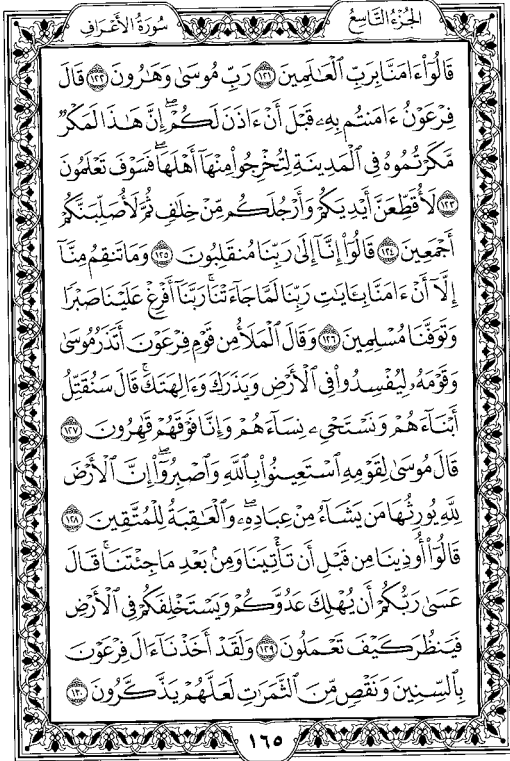 الجُزْءُ التَّاسِعُ سُورَةُ الأَعْرَافِ
قَالُوٓاْ ءَامَنَّا بِرَبِّ ٱلْعَٰلَمِينَ ١٢١ رَبِّ مُوسَىٰ وَهَٰرُونَ ١٢٢ قَالَ
فِرْعَوْنُ ءَامَنتُم بِهِۦ قَبْلَ أَنْ ءَاذَنَ لَكُمْۖ إِنَّ هَٰذَا لَمَكْرٌ
مَّكَرْتُمُوهُ فِى ٱلْمَدِينَةِ لِتُخْرِجُواْ مِنْهَآ أَهْلَهَاۖ فَسَوْفَ تَعْلَمُونَ
١٢٣ لَأُقَطِّعَنَّ أَيْدِيَكُمْ وَأَرْجُلَكُم مِّنْ خِلَٰفٍ ثُمَّ لَأُصَلِّبَنَّكُمْ
أَجْمَعِينَ ١٢٤ قَالُوٓاْ إِنَّآ إِلَىٰ رَبِّنَا مُنقَلِبُونَ ١٢٥ وَمَا تَنقِمُ مِنَّآ
إِلَّآ أَنْ ءَامَنَّا بِـَٔايَٰتِ رَبِّنَا لَمَّا جَآءَتْنَاۚ رَبَّنَآ أَفْرِغْ عَلَيْنَا صَبْرًا
وَتَوَفَّنَا مُسْلِمِينَ ١٢٦ وَقَالَ ٱلْمَلَأُ مِن قَوْمِ فِرْعَوْنَ أَتَذَرُ مُوسَىٰ
وَقَوْمَهُۥ لِيُفْسِدُواْ فِى ٱلْأَرْضِ وَيَذَرَكَ وَءَالِهَتَكَۚ قَالَ سَنُقَتِّلُ
أَبْنَآءَهُمْ وَنَسْتَحْىِۦ نِسَآءَهُمْ وَإِنَّا فَوْقَهُمْ قَٰهِرُونَ ١٢٧
قَالَ مُوسَىٰ لِقَوْمِهِ ٱسْتَعِينُواْ بِٱللَّهِ وَٱصْبِرُوٓاْۖ إِنَّ ٱلْأَرْضَ
لِلَّهِ يُورِثُهَا مَن يَشَآءُ مِنْ عِبَادِهِۦۖ وَٱلْعَٰقِبَةُ لِلْمُتَّقِينَ ١٢٨
قَالُوٓاْ أُوذِينَا مِن قَبْلِ أَن تَأْتِيَنَا وَمِنۢ بَعْدِ مَا جِئْتَنَاۚ قَالَ
عَسَىٰ رَبُّكُمْ أَن يُهْلِكَ عَدُوَّكُمْ وَيَسْتَخْلِفَكُمْ فِى ٱلْأَرْضِ
فَيَنظُرَ كَيْفَ تَعْمَلُونَ ١٢٩ وَلَقَدْ أَخَذْنَآ ءَالَ فِرْعَوْنَ
بِٱلسِّنِينَ وَنَقْصٍ مِّنَ ٱلثَّمَرَٰتِ لَعَلَّهُمْ يَذَّكَّرُونَ ١٣٠
١٦٥